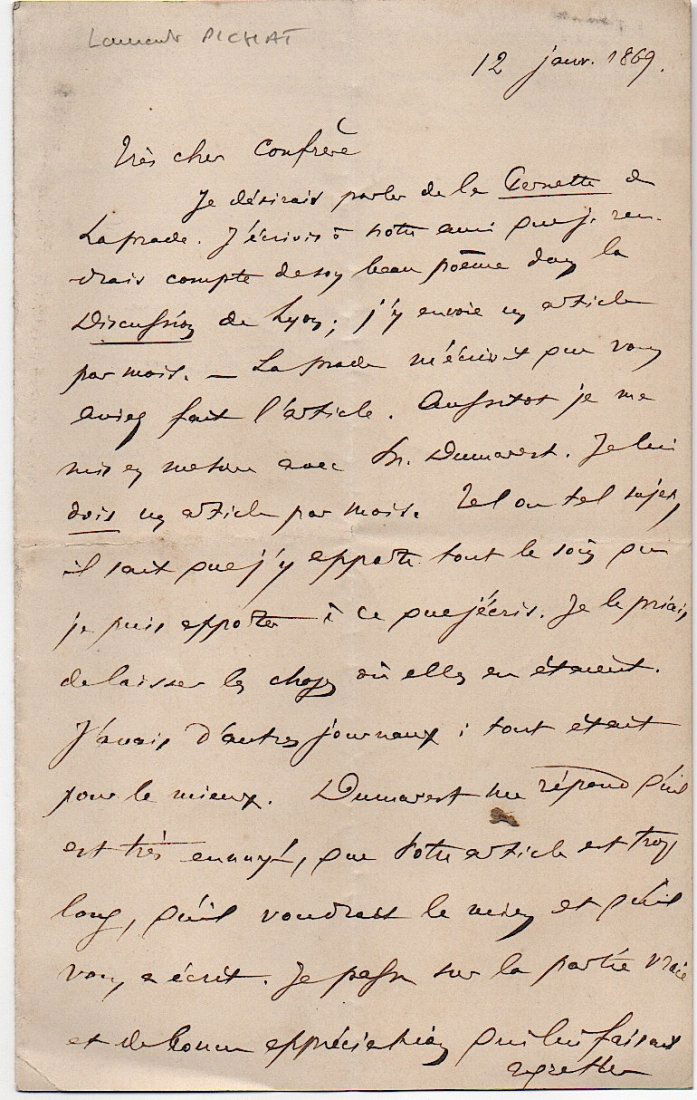 Laurent PICHAT
12 janv. 1869.
Très cher Confrère
Je désirais parler de la Pernette de
Laprade. J'écrivis à notre ami que je ren-
drais compte de son beau poëme dans la
Discussion de Lyon; j'y envoie un article
par mois. — Laprade m'écrivit que vous
aviez fait l'article. Aussitot je me
mis en mesure avec M. Dumarest. Je lui
dois un article par mois. Tel ou tel sujet,
il sait que j'y apporte tout le soin que
je puis apporter à ce que j'écris. Je le priais
de laisser les choses où elles en étaient.
J'avais d'autres journaux; tout était
pour le mieux. Dumarest me répond qu'il
est très ennuyé, que votre article est trop
long, qu'il voudrait le mien et qu'il
vous a écrit. Je passe sur la partie vraie
et de bonne appréciation qui lui faisait
regretter